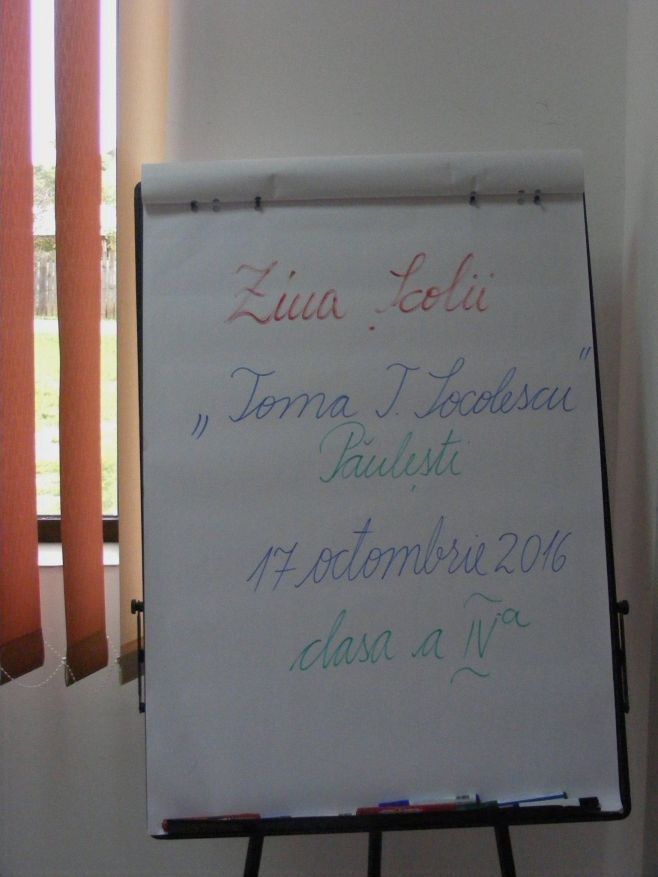 Ziua Școlii
„Toma T. Socolescu"
Păulești
17 octombrie 2016
clasa a IV-a